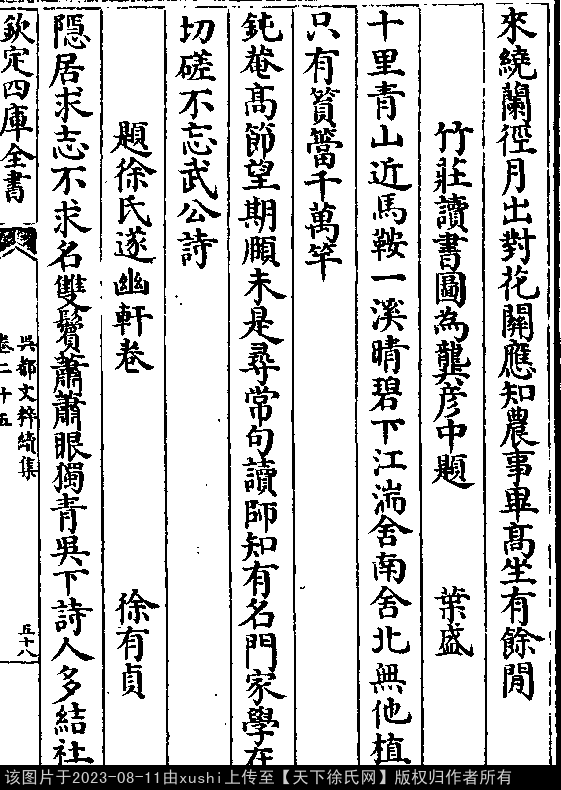 來繞蘭徑月出對花關應知農事畢髙生有餘閒
竹莊讀書圖為龔彦中題 葉盛
十里青山近馬鞍一溪晴碧下江湍舍南舍北無他植
只有篔簹千萬竿
鈍菴髙節望期頥未是尋常句讀師知有名門家學在
切磋不忘武公詩
題徐氏遂幽軒卷 徐有貞
隠居求志不求名雙鬢蕭蕭眼獨青吳下詩人多結社
欽定四庫全書
吳都文粹續集
卷二十五
五十八
该图片于2023-08-11由xushi上传至【天下徐氏网】版权归作者所有